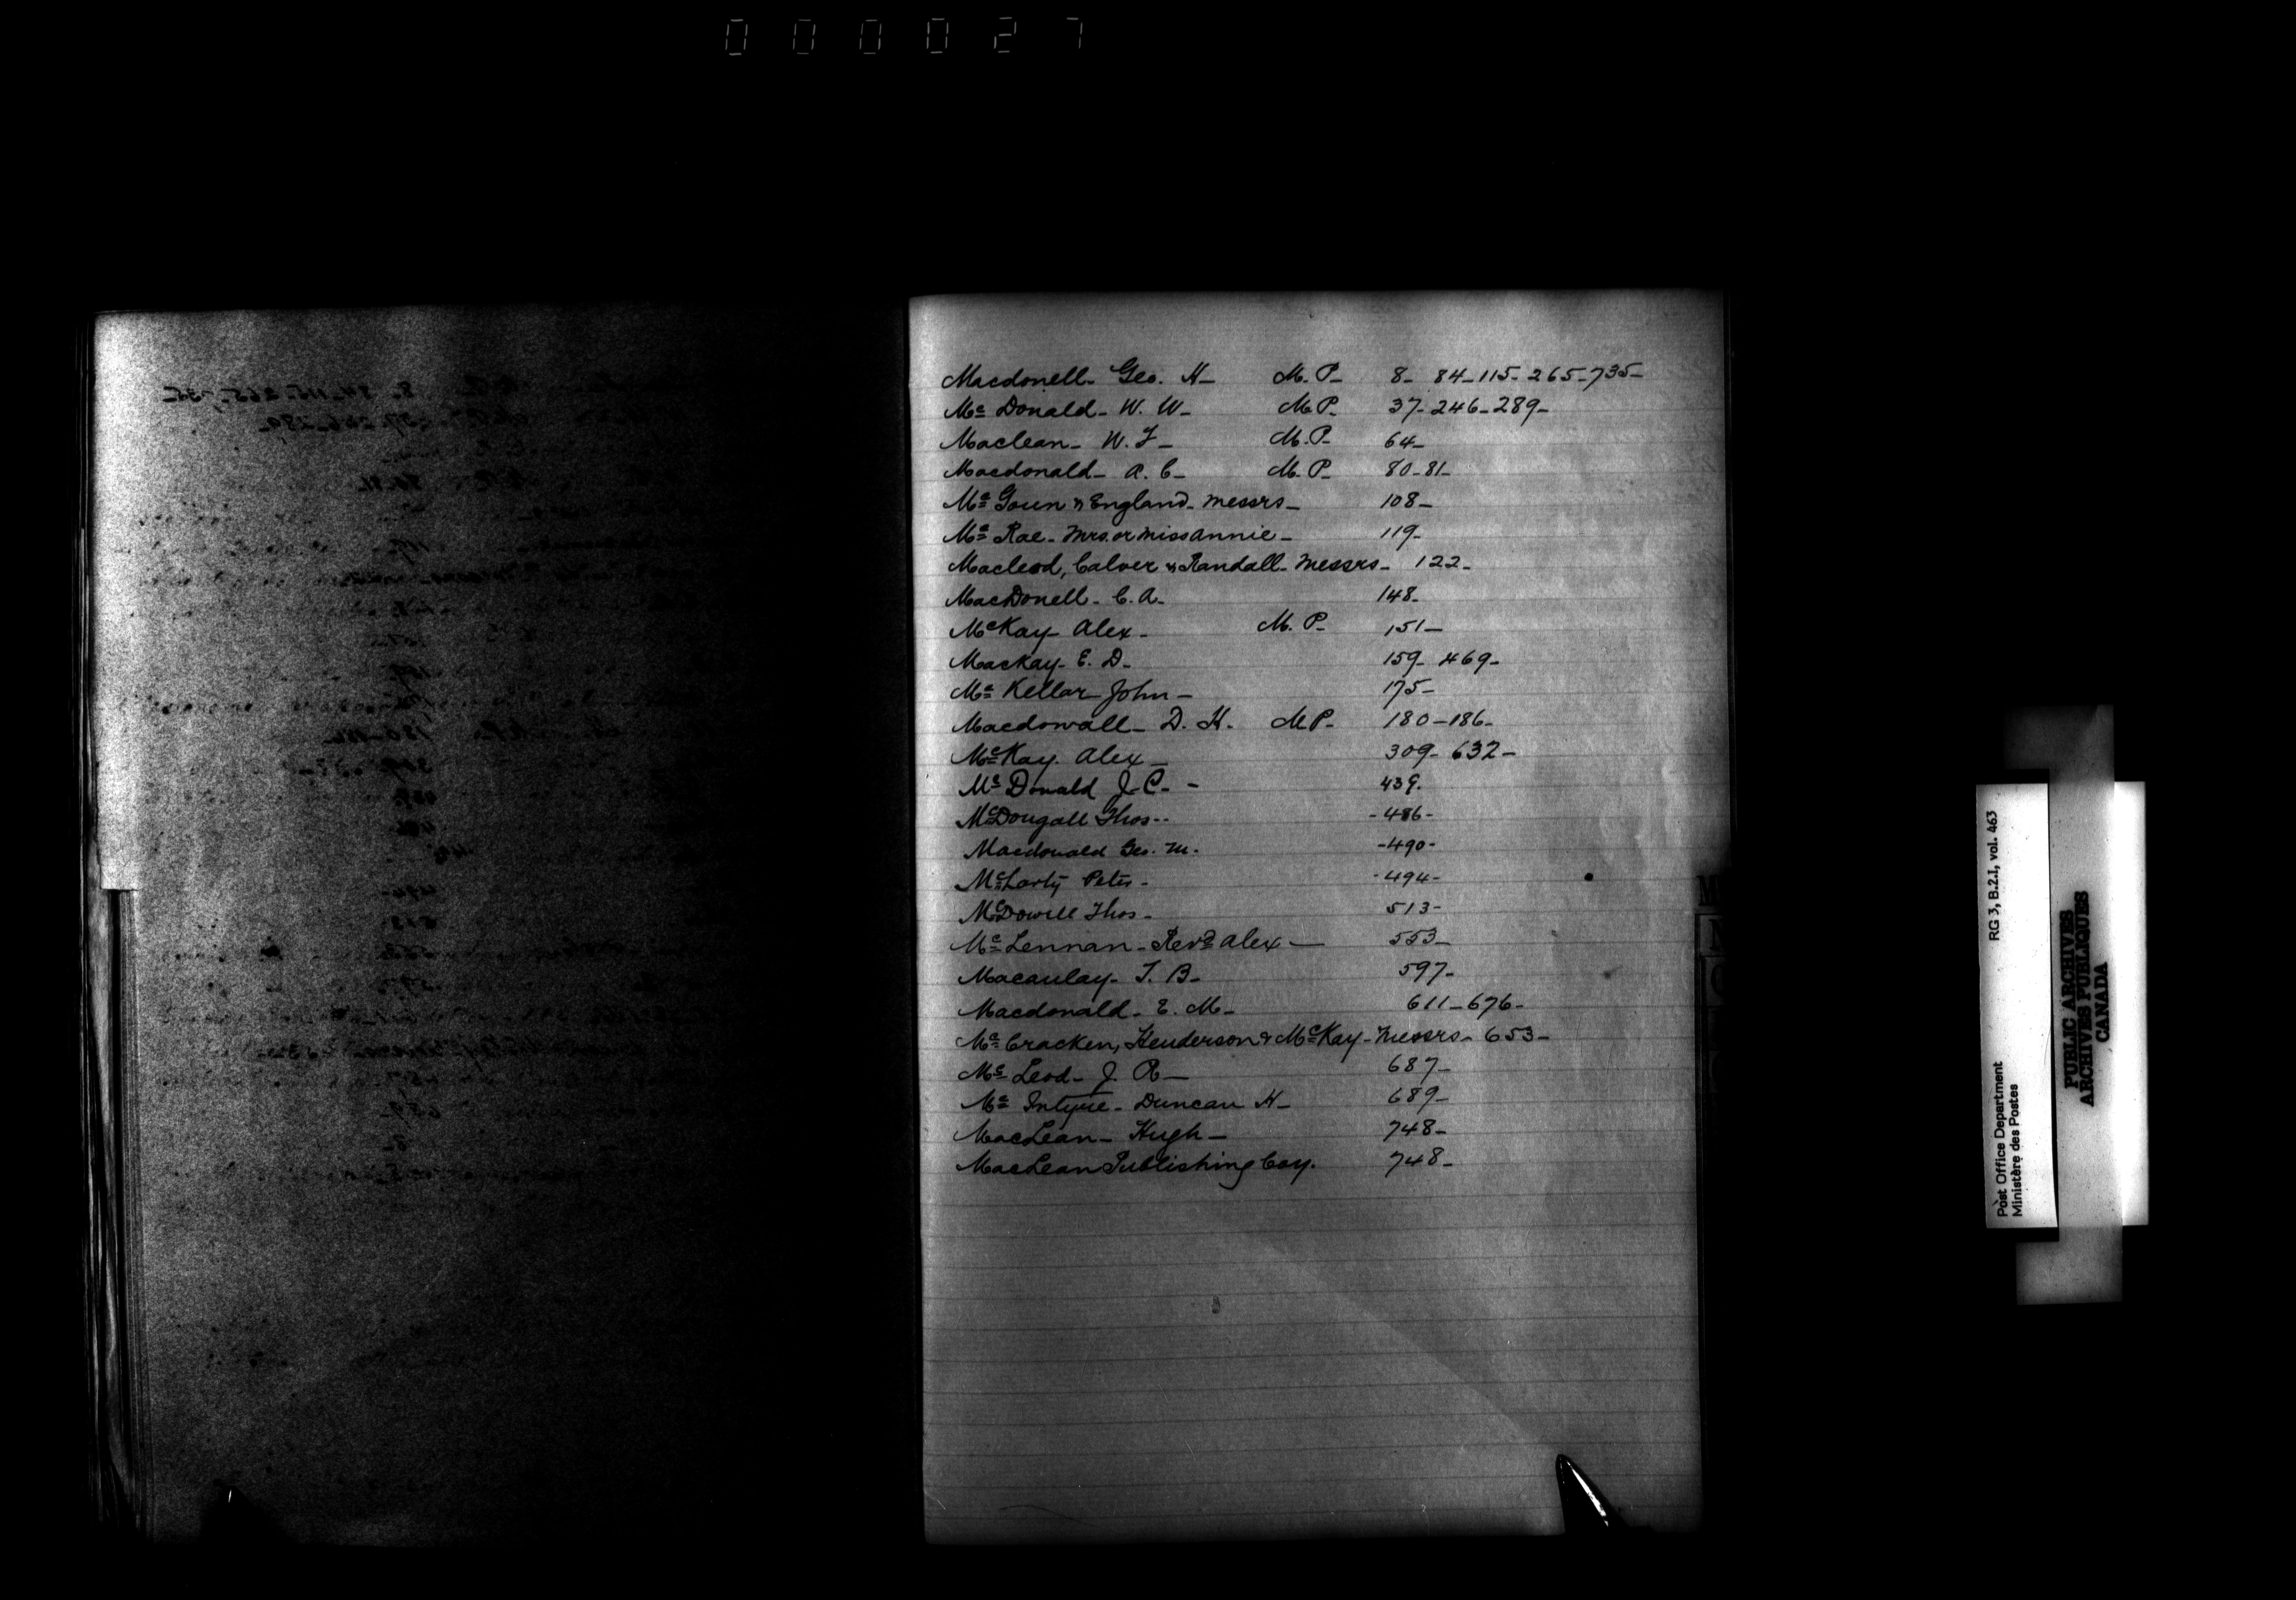 000027
Macdonell- Geo. H- M.P- 8- 84-115-265-735-
Mc Donald- W. W- M.P- 37-246-289-
Maclean- W. F- M.P- 64-
Macdonald- A. C- M.P- 80-81-
Mc Goun & England- Messrs- 108-
Mc Rae- Mrs. or Miss Annie- 119-
Macleod, Calver & Randall- Messrs- 122-
MacDonell- C. A- 148-
McKay- Alex- M.P- 151-
Mackay- E. D- 159- 469-
Mc Kellar- John- 175-
Macdowall- D. H. M.P- 180-186-
McKay. Alex- 309- 632-
Mc Donald J. C. - 439.
McDougall Thos-- -486-
Macdonald Geo. M. -490-
McLarty Peter- -494-
McDowell Thos- 513-
Mc Lennan- Revd Alex- 553-
Macaulay- T. B- 597-
Macdonald- E. M- 611-676-
Mc Cracken, Henderson & McKay- Messrs- 653-
Mc Leod- J. R- 687-
Mc Intyre- Duncan H- 689-
MacLean- Hugh- 748-
MacLean Publishing Coy. 748-
Post Office Department RG 3, B.2.I, vol. 463
Ministère des Postes
PUBLIC ARCHIVES
ARCHIVES PUBLIQUES
CANADA